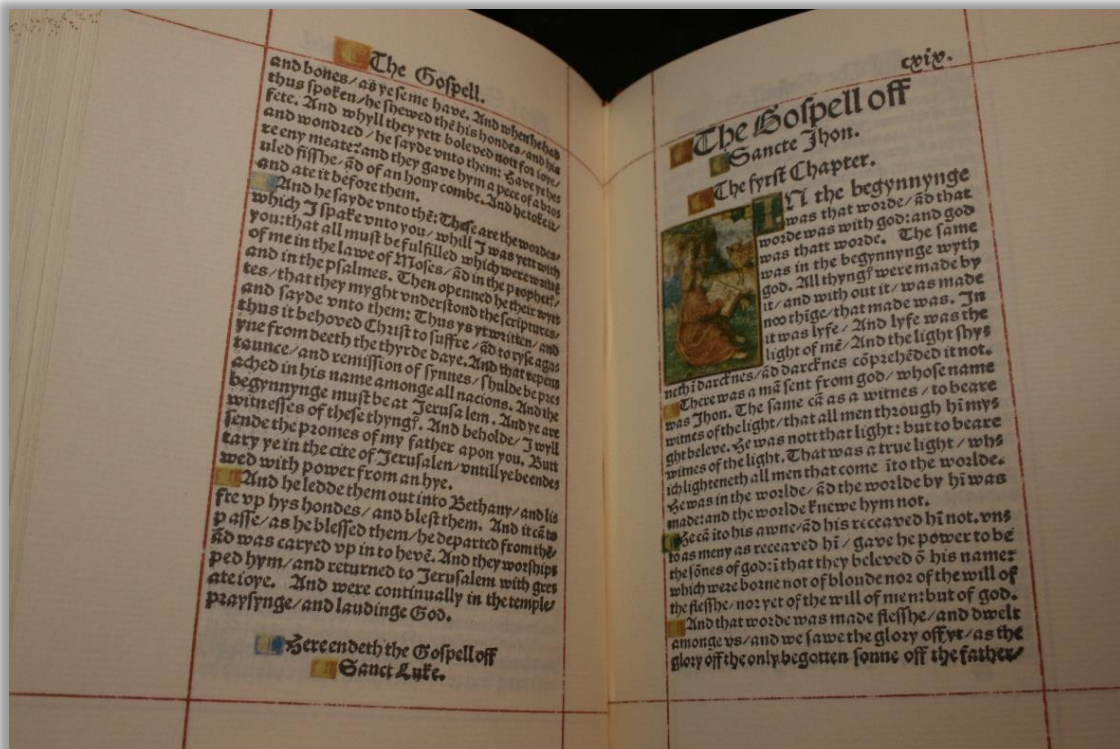 The Gospell.
and bones/ as ye seme have. And when he had
thus spoken/ he shewed thē his hondes/ and his
fete. And whyll they yett beleved nott for ioye/
and wondred/ he sayde vnto them: Have ye hes
re eny meate: and they gave hym a pece of a bros
uled fisshe/ ād of an hony combe. And he toke it/
and ate it before them.
And he sayde vnto thē: These are the wordes/
which I spake vnto you/ whill I was yett with
you: that all must be fulfilled which were written
of me in the lawe of Moses/ ād in the prophetꝭ/
and in the psalmes. Then opened he their wyt
tes/ that they myght vnderstond the scriptures/
and sayde vnto them: Thus ys yt written/ and
thus it behoved Christ to suffre/ ād to ryse agas
yne from deeth the thyrde daye. And that repens
taunce/ and remission of synnes/ shulde be pres
ached in his name amonge all nacions. And the
begynnynge must be at Jerusalem. And ye are
witnesses of these thyngꝭ. And beholde/ I wyll
sende the promes of my father apon you. Butt
tary ye in the cite of Jerusalen/ vntill ye be endes
wed with power from an hye.
And he ledde them out into Bethany/ and lis
fte vp hys hondes/ and blest them. And it cā to
passe/ as he blessed them/ he departed from thē/
ād was caryed vp in to hevē. And they worships
ped hym/ and returned to Jerusalem with gres
ate ioye. And were continually in the temple/
praysynge/ and laudinge God.
Here endeth the Gospell off
Sanct Luke.
cxix.
The Gospell off
Sancte Jhon.
The fyrst Chapter.
IN the begynnynge
was that worde/ ād that
worde was with god: and god
was thatt worde. The same
was in the begynnynge wyth
god. All thyngꝭ were made by
it/ and with out it/ was made
noo thīge/ that made was. In
it was lyfe/ And lyfe was the
light of mē/ And the light shys
neth ī darcknes/ ād darcknes cōprehēded it not.
There was a mā sent from god/ whose name
was Jhon. The same cā as a witnes/ to beare
witnes of the light/ that all men through hī mys
ght beleve. He was nott that light: but to beare
witnes of the light. That was a true light/ whs
ich lighteneth all men that come īto the worlde.
He was in the worlde/ ād the worlde by hī was
made: and the worlde knewe hym not.
He cā īto his awne/ ād his receaved hī not. vns
to as meny as receaved hī/ gave he power to be
the sōnes of god: ī that they beleved ō his name:
which were borne not of bloude nor of the will of
the flesshe/ nor yet of the will of men: but of god.
And that worde was made flesshe/ and dwelt
amonge vs/ and we sawe the glory off yt/ as the
glory off the only begotten sonne off the father/